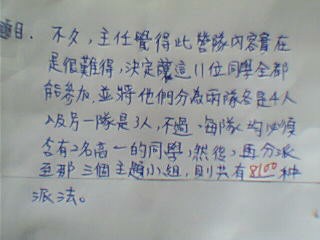 題目. 不久，主任覺得此營隊內容實在
是很難得，決定讓這11位同學全部
能參加，並將他們分為兩隊各是4人
以及另一隊是3人，不過，每隊均必須
含有2名高一的同學，然後，再分派
至那三個主題小組，則共有8100種
派法。